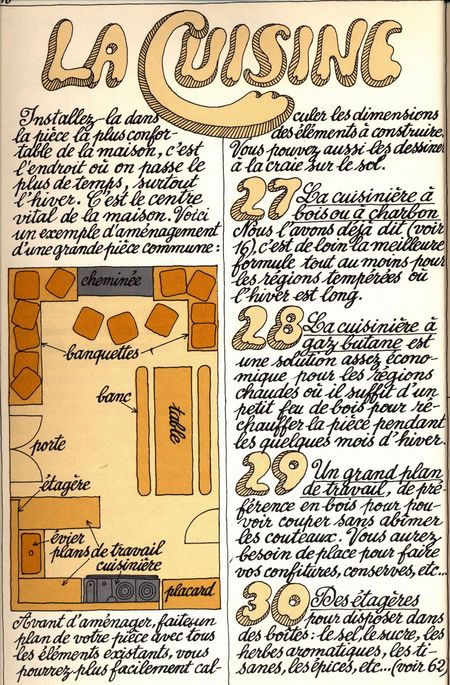 LA CUISINE
Installez-la dans
la pièce la plus confor-
table de la maison, c'est
l'endroit où on passe le
plus de temps, surtout
l'hiver. C'est le centre
vital de la maison. Voici
un exemple d'aménagement
d'une grande pièce commune :
cheminée
banquettes
banc
table
porte
étagère
évier
plans de travail
cuisinière
placard
Avant d'aménager, faites un
plan de votre pièce avec tous
les éléments existants, vous
pourrez plus facilement cal-
culer les dimensions
des éléments à construire.
Vous pouvez aussi les dessiner
à la craie sur le sol.
27 La cuisinière à
bois ou à charbon
Nous l'avons déjà dit (voir
16), c'est de loin la meilleure
formule tout au moins pour
les régions tempérées où
l'hiver est long.
28 La cuisinière à
gaz butane est
une solution assez écono-
mique pour les régions
chaudes où il suffit d'un
petit feu de bois pour ré-
chauffer la pièce pendant
les quelques mois d'hiver.
29 Un grand plan
de travail, de pré-
férence en bois pour pou-
voir couper sans abîmer
les couteaux. Vous aurez
besoin de place pour faire
vos confitures, conserves, etc...
30 Des étagères
pour disposer dans
des boîtes : le sel, le sucre, les
herbes aromatiques, les ti-
sanes, les épices, etc... (voir 62)